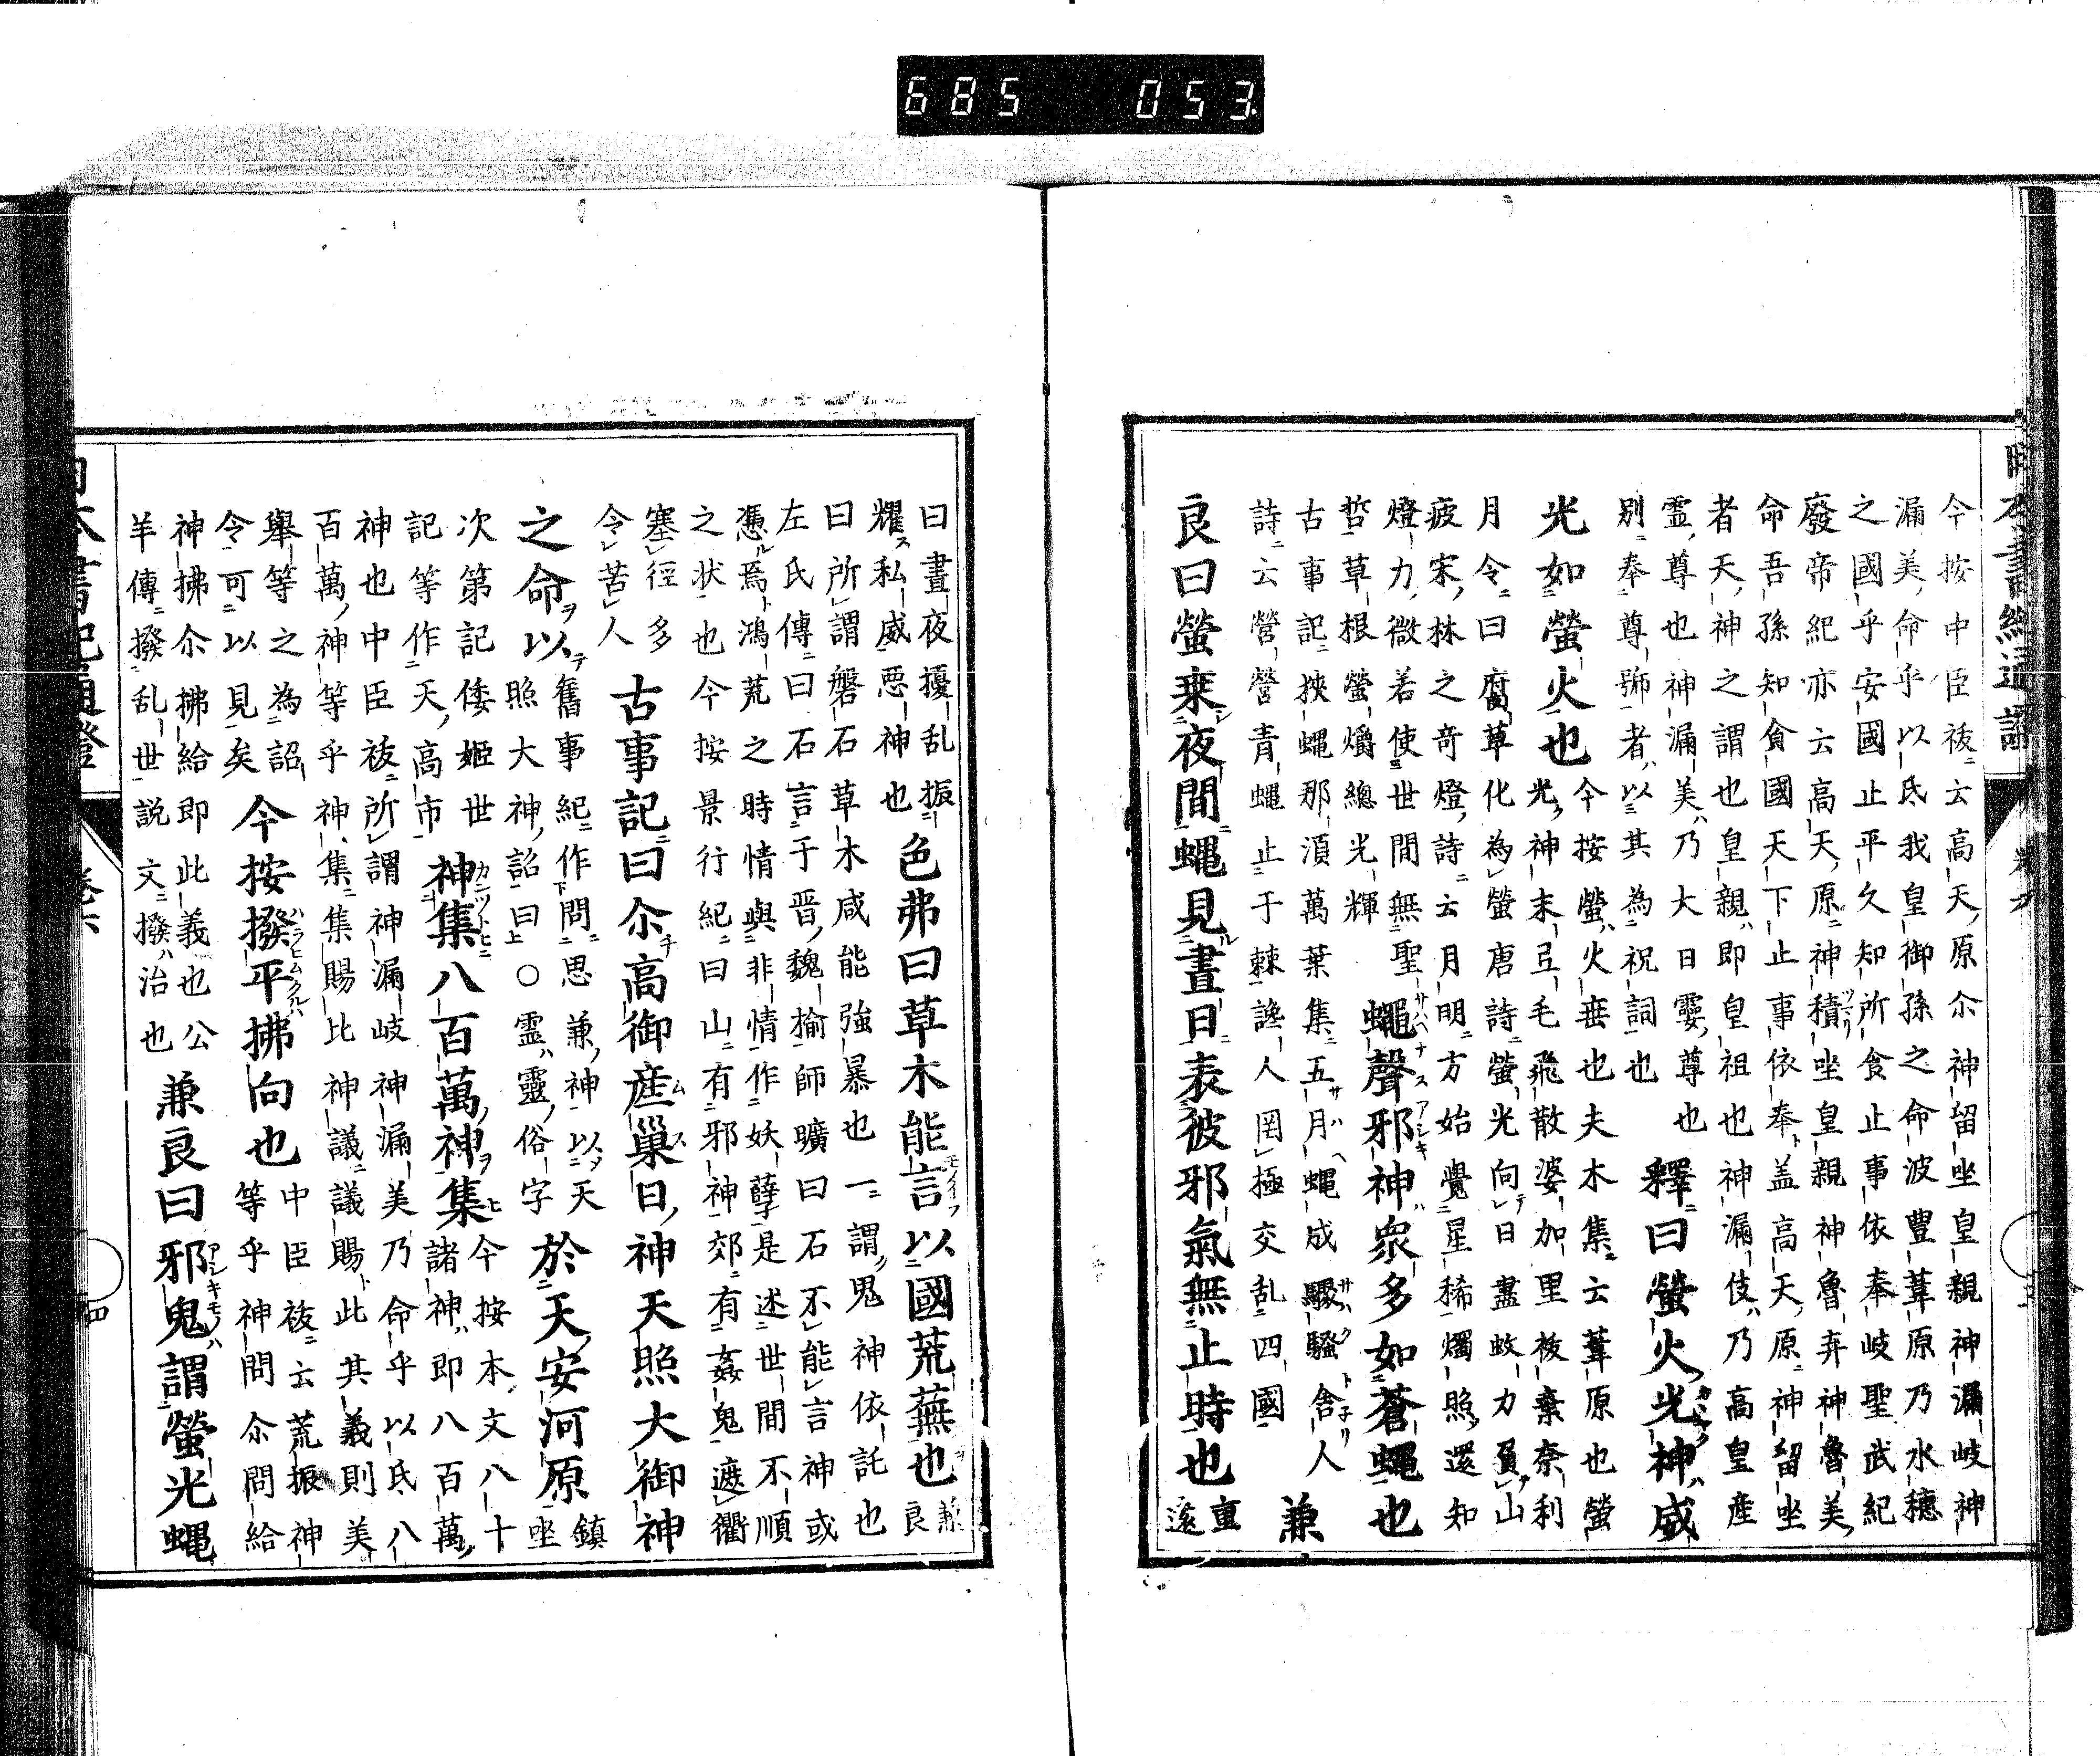 685 053
今按中臣祓云高天原尒神留坐皇親神漏岐神
漏美命乎以氐我皇御孫之命波豊葦原乃水穗
之國乎安國止平久知所食止事依奉岐聖武紀
廢帝紀亦云高天原神積坐皇親神魯弃神魯美
命吾孫知食國天下止事依奉盖高天原神留坐
者天神之謂也皇親即皇祖也神漏伎乃高皇産
霊尊也神漏美乃大日孁尊也
別奉尊號者以其為祝詞也
釋曰螢火光神威
光如螢火也
今按螢火蚕也夫木集云葦原也螢
光神末豆毛飛散婆加里祓棄奈利
月令曰腐草化為螢唐詩螢光向日盡蚊力負山
疲宋林之奇燈詩云月明方始覺星稀燭照還知
燈力微若使世間無聖
哲草根螢爝總光輝
蠅聲邪神衆多如蒼蠅也
古事記挾蠅那湏萬葉集五月蠅成驟騒舎人
詩云營營青蠅止于棘讒人罔極交乱四國
兼
良曰螢乗夜間蠅見晝日表彼邪氣無止時也
重
遠
曰晝夜擾乱振
耀私威悪神也
色弗曰草木能言以國荒蕪也
兼
良
曰所謂磐石草木咸能強暴也一謂鬼神依託也
左氏傳曰石言于晋魏揄師曠曰石不能言神或
憑焉鴻荒之時情與非情作妖孽是述世間不順
之状也今按景行紀曰山有邪神郊有姦鬼遮衢
塞徑多
令苦人
古事記曰尒高御産巢日神天照大御神
之命以
舊事紀作問思兼神以天
照大神詔曰○霊靈俗字
於天安河原
鎮
坐
次第記倭姫世
記等作天高市
神集八百萬神集
今按本文八十
諸神即八百萬
神也中臣祓所謂神漏岐神漏美乃命乎以氐八
百萬神等乎神集集賜比神議議賜此其義則美
舉等之為詔
令可以見矣
今按撥平拂向也
中臣祓云荒振神
等乎神問尒問給
神拂尒拂給即此義也公
羊傳撥乱世説文撥治也
兼良曰邪鬼謂螢光蠅